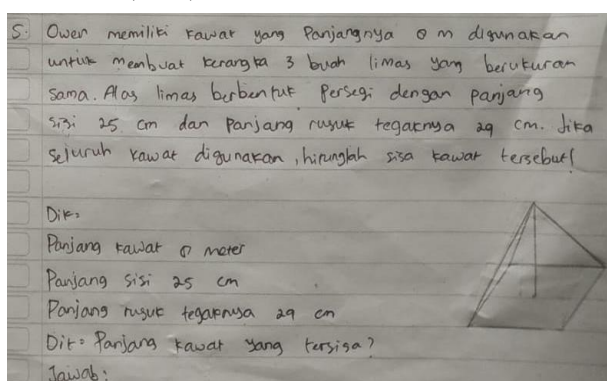 5. Owen memiliki kawat yang Panjangnya 8 m digunakan
untuk membuat kerangka 3 buah limas yang berukuran
sama. Alas limas berbentuk Persegi dengan panjang
sisi 25 cm dan Panjang rusuk tegaknya 29 cm. Jika
sejuruh kawat digunakan, hitunglah sisa kawat tersebut!
Dik:
Panjang kawat 8 meter
Panjang sisi 25 cm
Panjang rusuk tegaknya 29 cm
Dit: Panjang kawat yang tersisa?
Jawab: